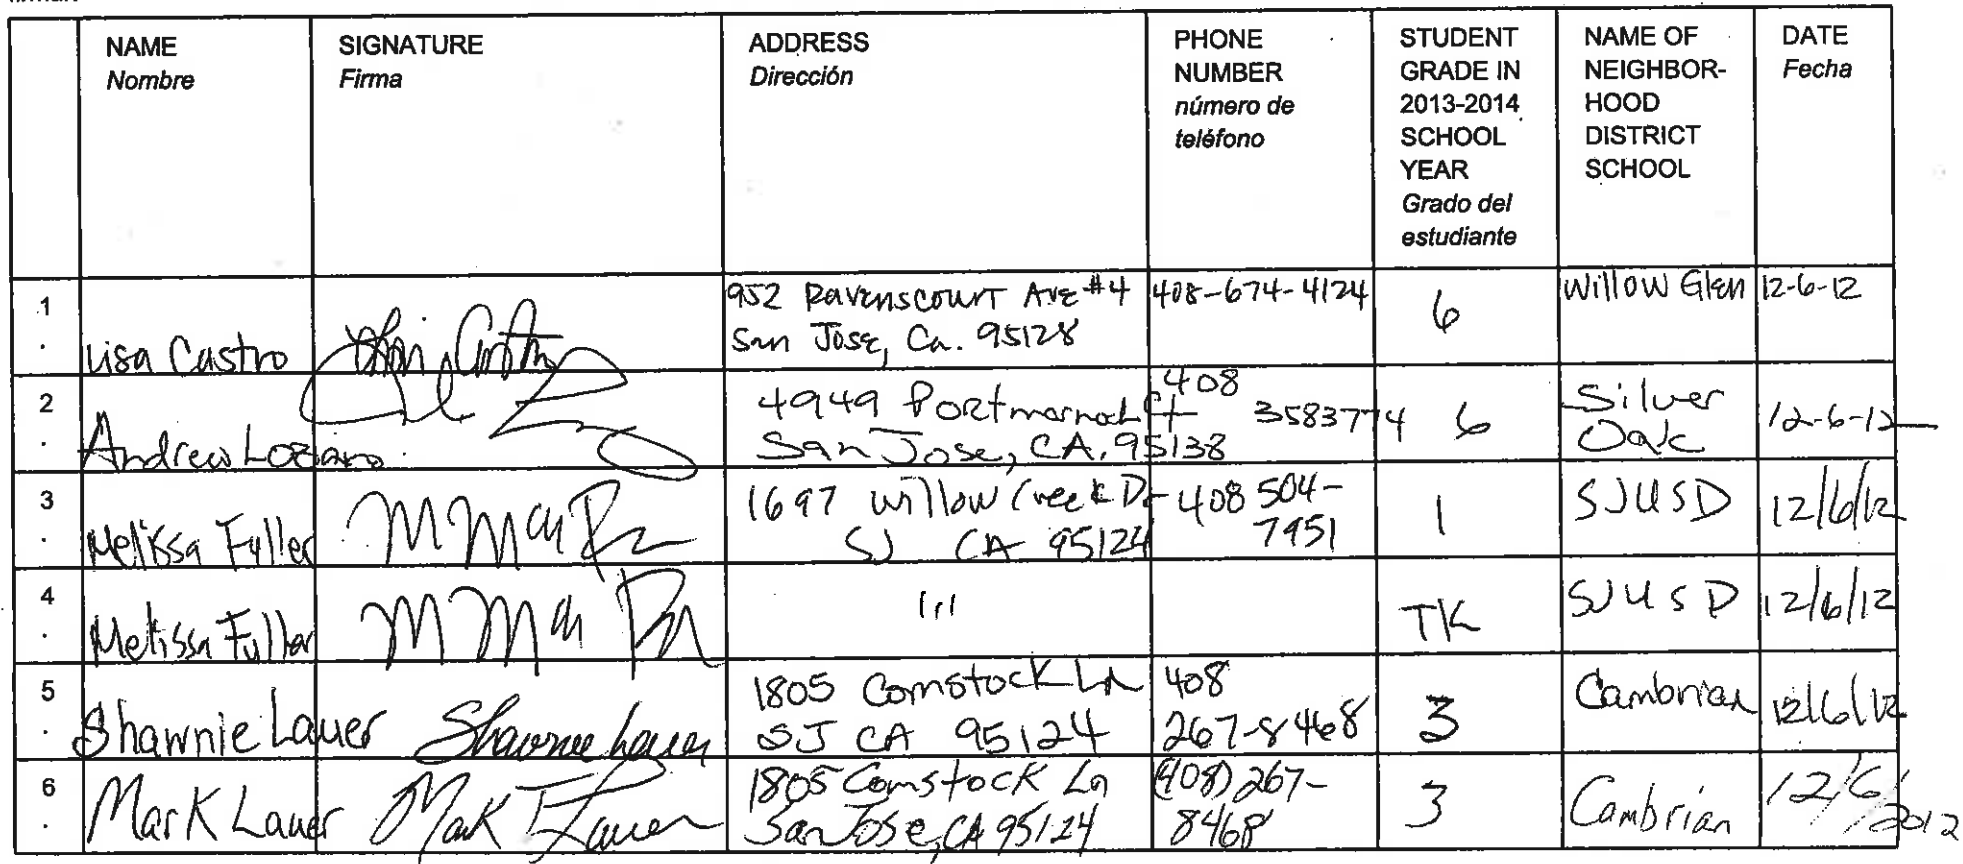 NAME
Nombre
SIGNATURE
Firma
ADDRESS
Dirección
PHONE
NUMBER
número de
teléfono
STUDENT
GRADE IN
2013-2014
SCHOOL
YEAR
Grado del
estudiante
NAME OF
NEIGHBOR-
HOOD
DISTRICT
SCHOOL
DATE
Fecha
1.
Lisa Castro
952 Ravenscourt Ave #4
San Jose, Ca. 95128
408-674-4124
6
Willow Glen
12-6-12
2.
Andrew Lozano
4949 Portmarnoch Ct
San Jose, CA. 95138
408
3583774
6
Silver
Oak
12-6-12
3.
Melissa Fuller
1697 Willow Creek Dr
SJ CA 95124
408 504-
7951
1
SJUSD
12/6/12
4.
Melissa Fuller
TK
SJUSD
12/6/12
5.
Shawnie Lauer
Shawnie Lauer
1805 Comstock Ln
SJ CA 95124
408
267-8468
3
Cambrian
12/6/12
6.
Mark Lauer
Mark Lauer
1805 Comstock Ln
San Jose, CA 95124
(408) 267-
8468
3
Cambrian
12/6/
2012